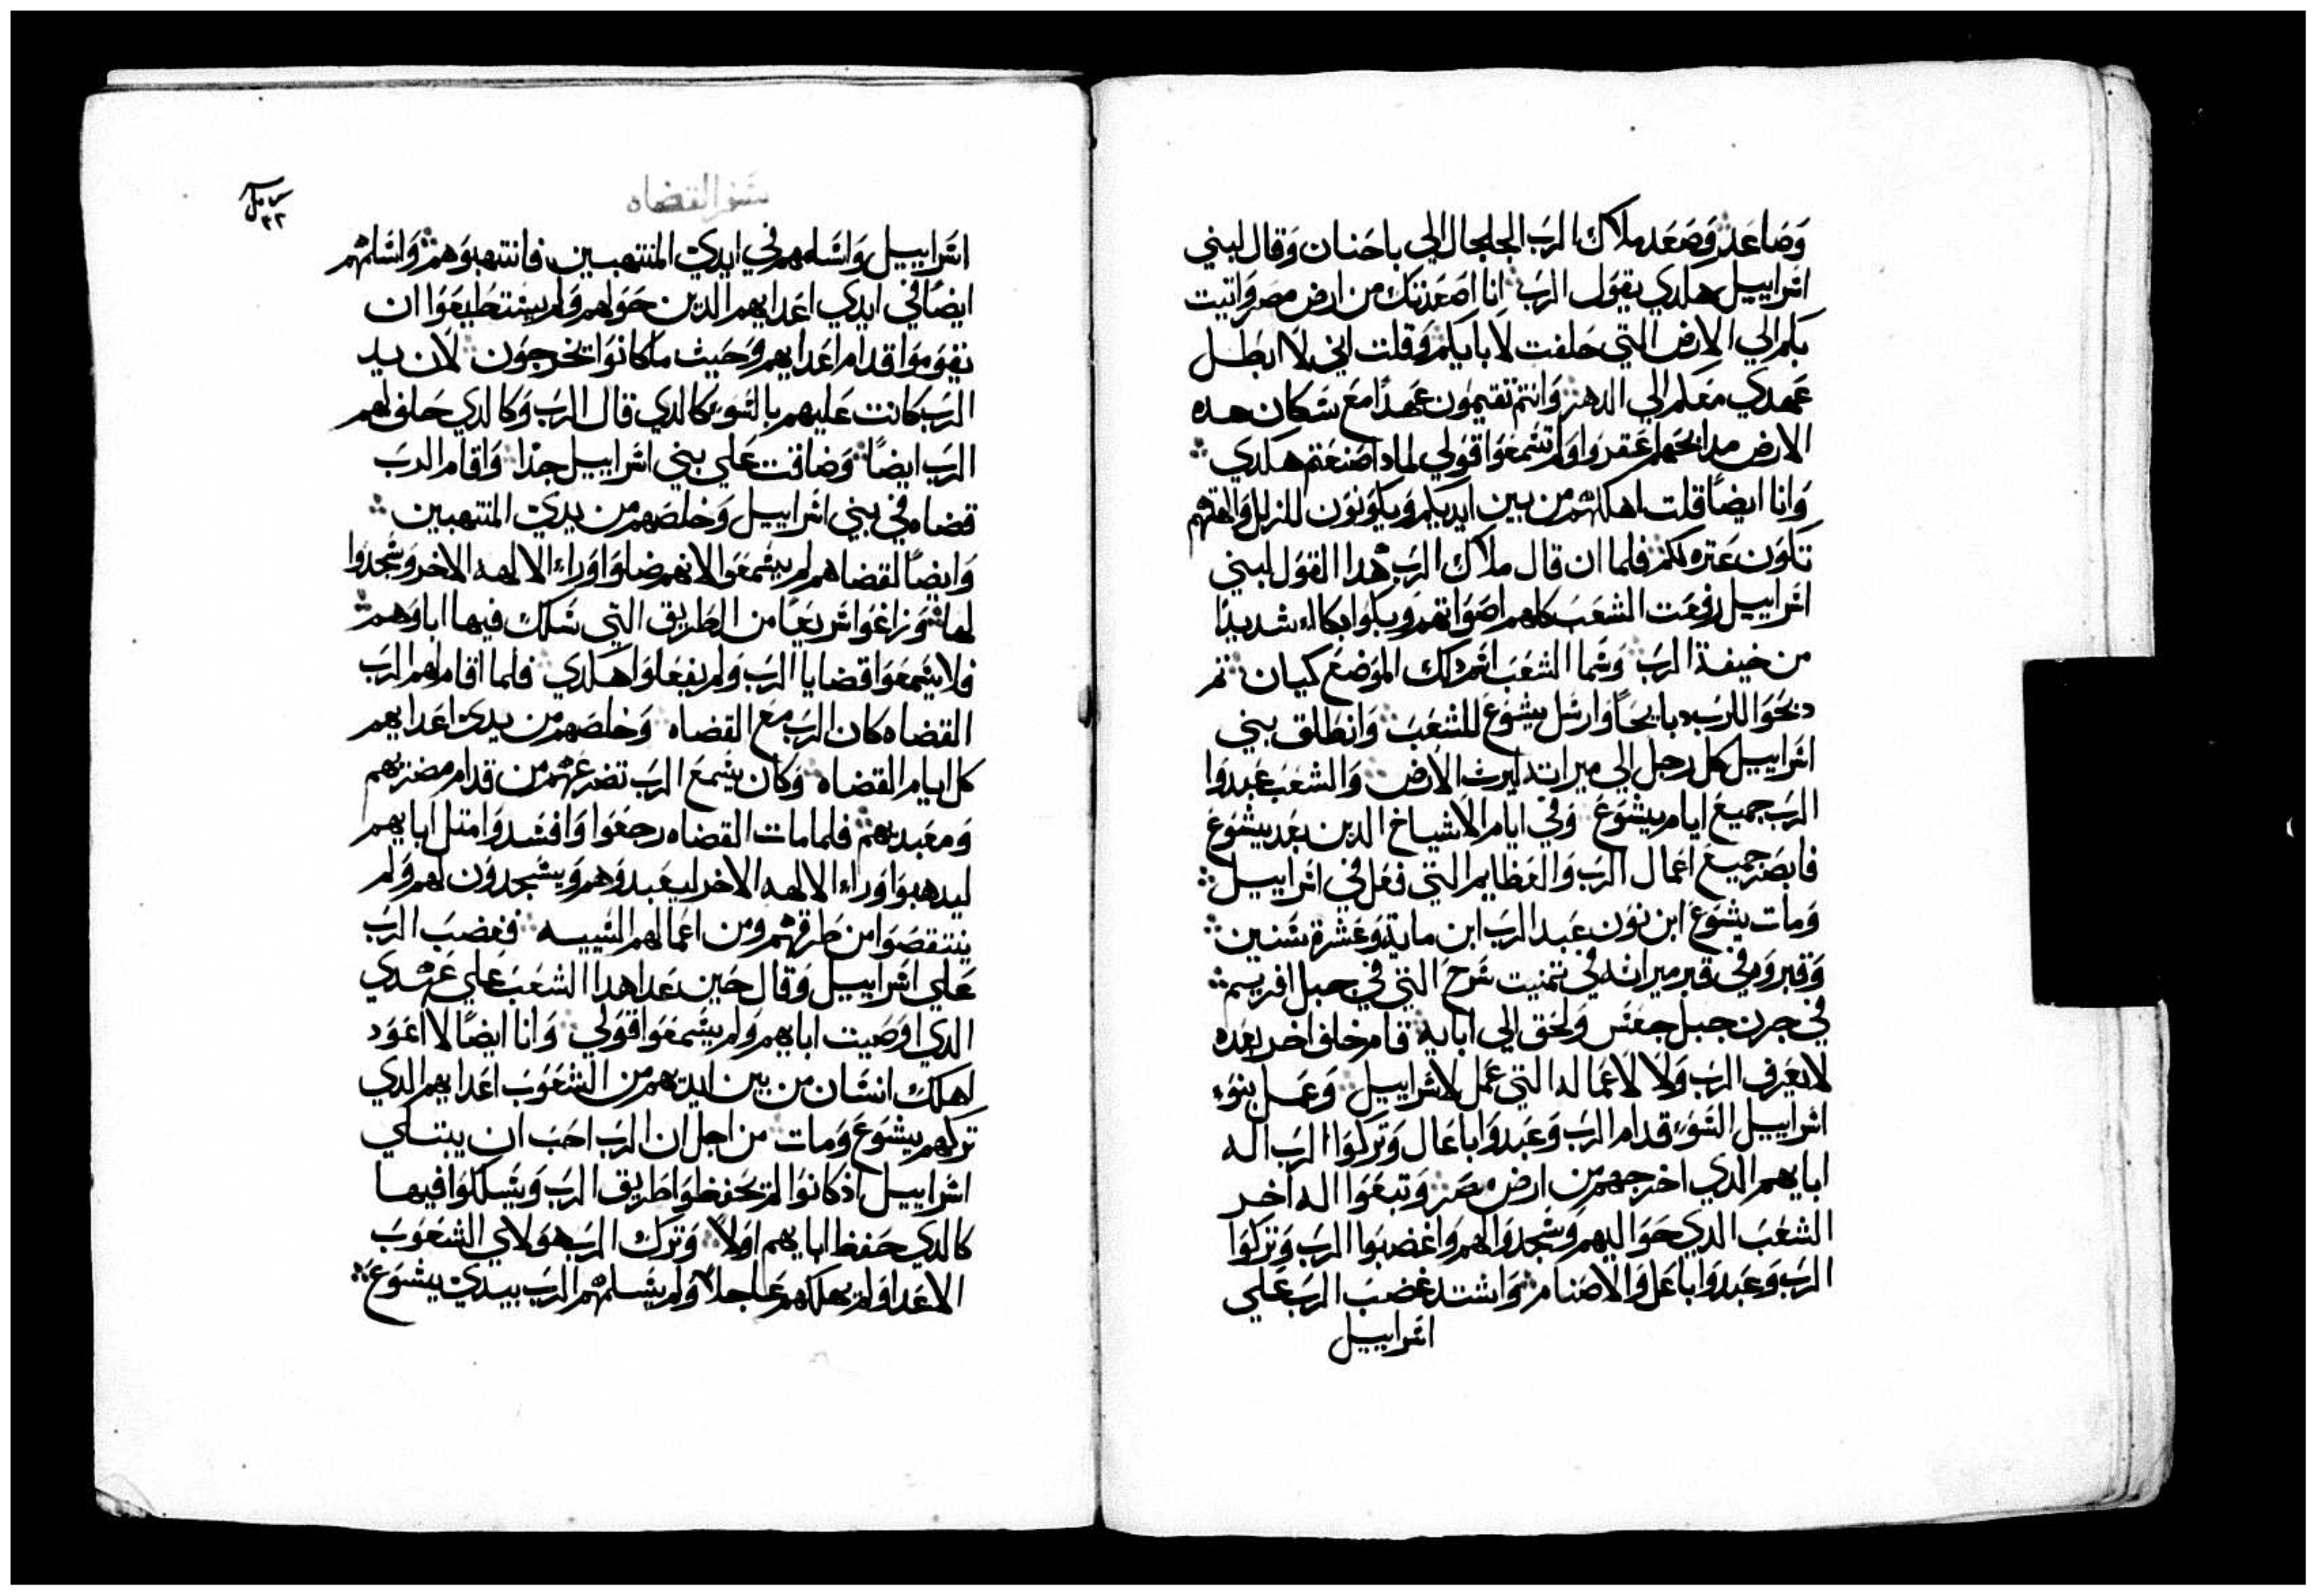 وصاعد وصعد ملاك الرب الجلجال الي باحنان وقال لبني
اسراييل هكدي يقول الرب انا اصعدتك من ارض مصر واتيت
بكم الي الارض التي حلفت لابايكم وقلت اني لا ابطل
عهدي معكم الي الدهر وانتم تقيمون عهدًا مع سكان هده
الارض مدابحهم اعقروا ولم تسمعوا قولي لمادا صنعتم هكدي
وانا ايضًا قلت اهلكهم من بين ايديكم ويكونون للزلل والهتهم
تكون عتره لكم فلما ان قال ملاك الرب هدا القول لبني
اسراييل رفعت الشعب كلهم اصواتهم وبكوا بكاء شديدًا
من خيفة الرب وسما الشعب اسم دلك الموضع كيان تم
دبحوا للرب دبايحًا وارسل يشوع للشعب وانطلق بني
اسراييل كل رجل الي ميراته ليرث الارض والشعب عبدوا
الرب جميع ايام يشوع وفي ايام الاشياخ الدين بعد يشوع
فابصر جميع اعمال الرب والعظايم التي فعل في اسراييل
ومات يشوع ابن نون عبد الرب ابن ماية وعشرة سنين
وقبروه في قبر ميراثه في تمنيت سرح التي في جبل افريسم
في جرن جبل جعس ولحق الي ابايه قام خلف اخر بعده
لا يعرف الرب ولا لاعماله التي عمل لاسراييل وعمل بنوء
اسراييل السوء قدام الرب وعبدوا باعال وتركوا الرب اله
ابايهم الدي اخرجهم من ارض مصر وتبعوا اله اخر
الشعب الدي حواليهم وسجدوا لهم واغضبوا الرب وتركوا
الرب وعبدوا باعل والاصنام واشتد غضب الرب علي
اسراييل
سفر القضاه
٣٢
اسراييل واسلمهم في ايدي المنتهبين فانتهبوهم واسلمهم
ايضًا في ايدي اعدايهم الدين حولهم ولم يستطيعوا ان
يقوموا قدام اعدايهم وحيث ما كانوا يخرجون لان يد
الرب كانت عليهم بالسوء كالدي قال الرب وكالدي حلف لهم
الرب ايضًا وضاقت علي بني اسراييل جدًا واقام الرب
قضاه في بني اسراييل وخلصهم من يدي المنتهبين
وايضًا لقضاهم لم يسمعوا لانهم ضلوا وراء الالهه الاخر وسجدوا
لها وزاغوا سريعًا من الطريق التي سلك فيها اباوهم
فلا يسمعوا قضايا الرب ولم يفعلوا هكدي فلما اقام لهم الرب
القضاه كان الرب مع القضاه وخلصهم من يدي اعدايهم
كل ايام القضاه وكان يسمع الرب تضرعهم من قدام مضربهم
ومعبديهم فلما مات القضاه رجعوا وافسدوا متل ابايهم
ليدهبوا وراء الالهه الاخر ليعبدوهم ويسجدون لهم ولم
ينتقصوا من طرقهم ومن اعمالهم السييه فغضب الرب
علي اسراييل وقال حين عدا هدا الشعب علي عهدي
الدي اوصيت ابايهم ولم يسمعوا قولي وانا ايضًا لا اعود
اهلك انسان من بين ايديهم من الشعوب اعدايهم الدي
تركهم يشوع ومات من اجل ان الرب احب ان يبتلي
اسراييل اذ كانوا لم يحفظوا طريق الرب ويسلكوا فيها
كالدي حفظ ابايهم اولًا وترك الرب هولاي الشعوب
الاعدا ولم يهلكهم عاجلًا ولم يسلمهم الرب بيدي يشوع